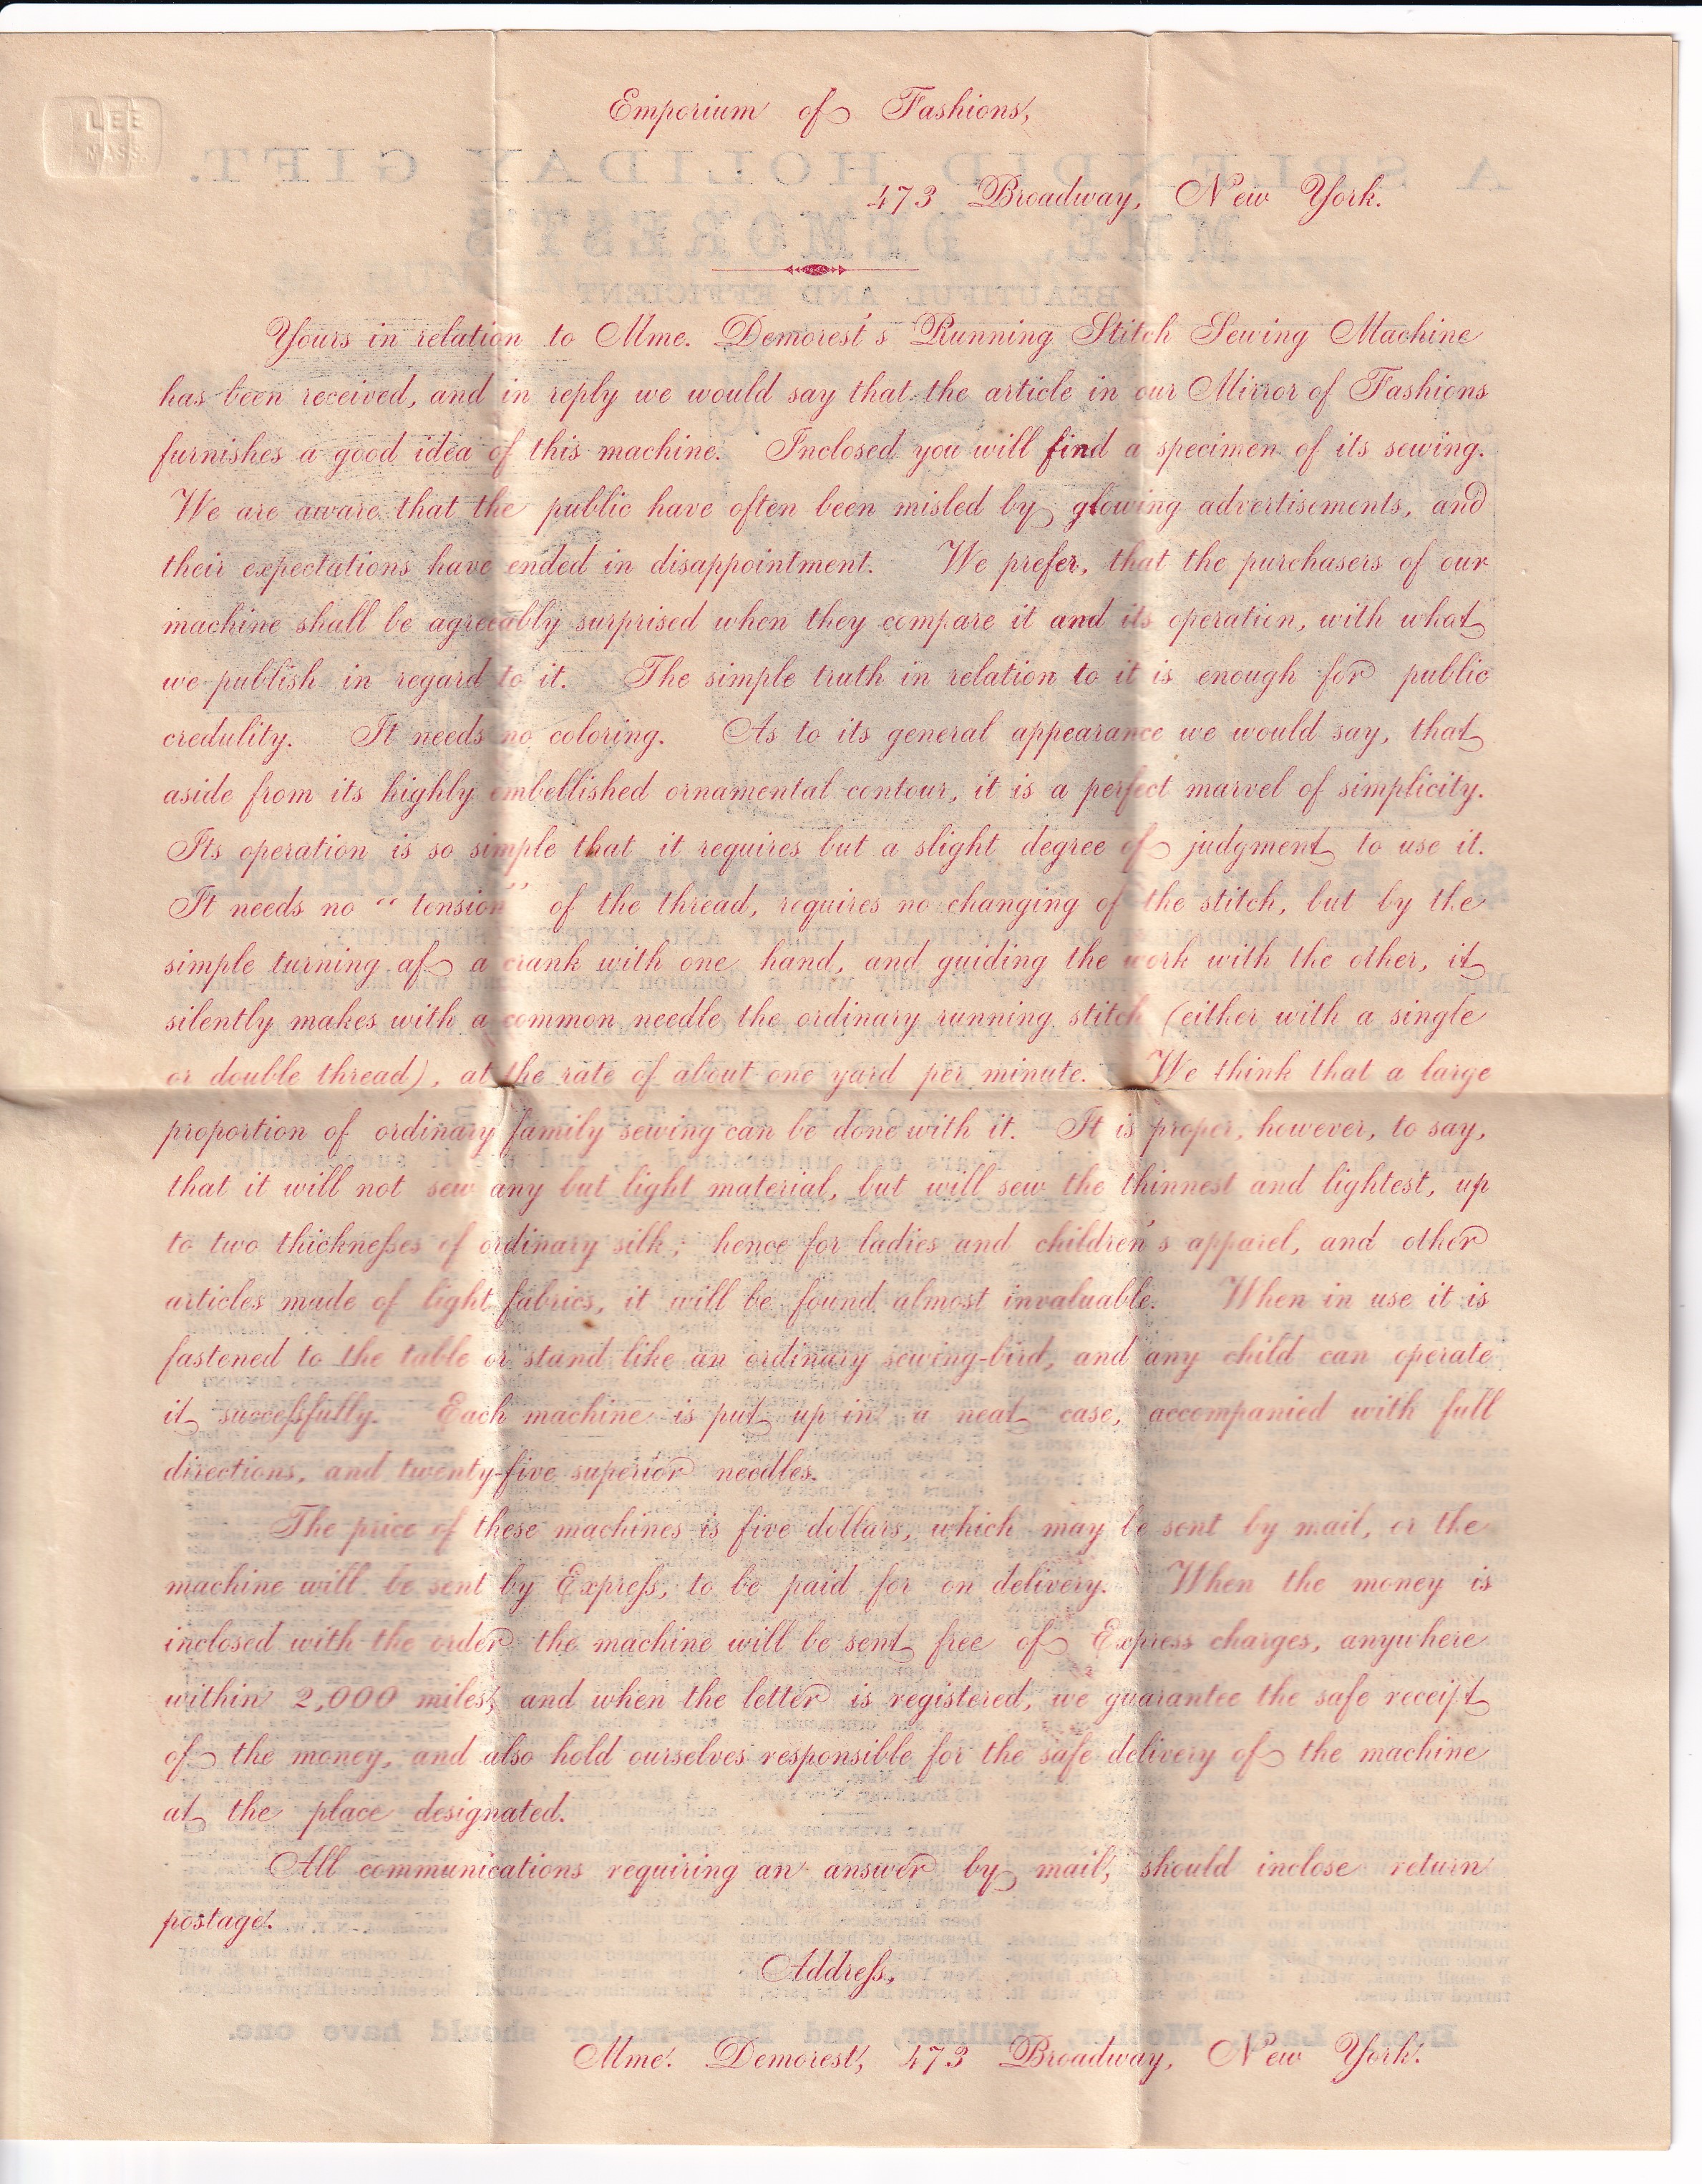 LEE
MASS.
Emporium of Fashions,
473 Broadway, New York.
Yours in relation to Mme. Demorest's Running Stitch Sewing Machine
has been received, and in reply we would say that the article in our Mirror of Fashions
furnishes a good idea of this machine. Inclosed you will find a specimen of its sewing.
We are aware that the public have often been misled by glowing advertisements, and
their expectations have ended in disappointment. We prefer, that the purchasers of our
machine shall be agreeably surprised when they compare it and its operation, with what
we publish in regard to it. The simple truth in relation to it is enough for public
credulity. It needs no coloring. As to its general appearance we would say, that
aside from its highly embellished ornamental contour, it is a perfect marvel of simplicity.
Its operation is so simple that it requires but a slight degree of judgment to use it.
It needs no "tension" of the thread, requires no changing of the stitch, but by the
simple turning af a crank with one hand, and guiding the work with the other, it
silently makes with a common needle the ordinary running stitch (either with a single
or double thread), at the rate of about one yard per minute. We think that a large
proportion of ordinary family sewing can be done with it. It is proper, however, to say,
that it will not sew any but light material, but will sew the thinnest and lightest, up
to two thickneſses of ordinary silk; hence for ladies and children's apparel, and other
articles made of light fabrics, it will be found almost invaluable. When in use it is
fastened to the table or stand like an ordinary sewing-bird, and any child can operate
it succeſsfully. Each machine is put up in a neat case, accompanied with full
directions, and twenty-five superior needles.
The price of these machines is five dollars, which may be sent by mail, or the
machine will be sent by Expreſs, to be paid for on delivery. When the money is
inclosed with the order the machine will be sent free of Express charges, anywhere
within 2,000 miles; and when the letter is registered, we guarantee the safe receipt
of the money, and also hold ourselves responsible for the safe delivery of the machine
at the place designated.
All communications requiring an answer by mail, should inclose return
postage.
Addreſs,
Mme. Demorest, 473 Broadway, New York.